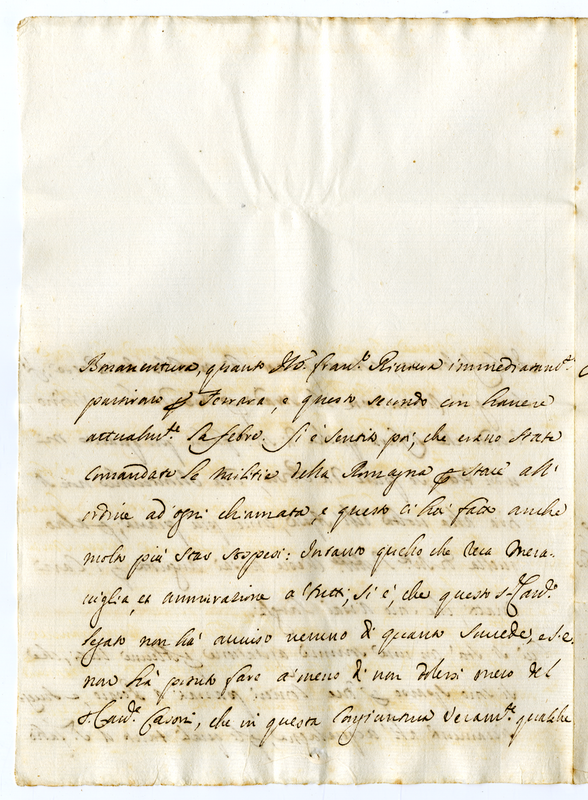 Bonaventura, quanto Franc.º Riviera immediatam.te
partirono p Ferrara, e questo secondo con havere
attualm.te la febre. Si è sentito poi, che erano state
comandate le militie della Romagna p stare all'
ordine ad ogni chiamata, e questo ci hà fatto anche
molto più star sospesi: Intanto quello che reca mera-
viglia, et ammirazione a tutti, si è, che questo S. Card.
Legato non hà avviso veruno di quanto succede, e S.E.
non hà potuto fare a meno di non dolersi meco del
S. Card. Casoni, che in questa Congiuntura veram.te qualche